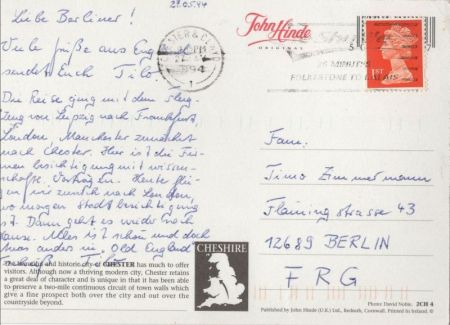 27.05.94
Liebe Berliner!
Viele Grüße aus Eng
sendet Euch Tilo
Die Reise ging mit dem Flug-
zeug von Leipzig nach Frankfurt
London, Manchester zunächst
nach Chester. Hier ist die Fir-
men besichtigung mit wissen-
schaftl. Vorträgen. Heute flie-
gen wir zurück nach London,
wo morgen Stadtbesichtigung
ist. Dann geht es wieder nach
Hause. Alles ist schön und doch
etwas anders in Old England
Tilo
The walled and historic city of CHESTER has much to offer
visitors. Although now a thriving modern city, Chester retains
a great deal of character and is unique in that it has been able
to preserve a two-mile continuous circuit of town walls which
give a fine prospect both over the city and out over the
countryside beyond.
CHESHIRE
John Hinde
ORIGINAL
1994
35 MINUTES
FOLKESTONE TO CALAIS
1ST
Fam.
Timo Zimmermann
Flämingstrasse 43
12689 BERLIN
FRG
Photo: David Noble. 2CH 4
Published by John Hinde (U.K.) Ltd., Redruth, Cornwall. Printed in Ireland. ©